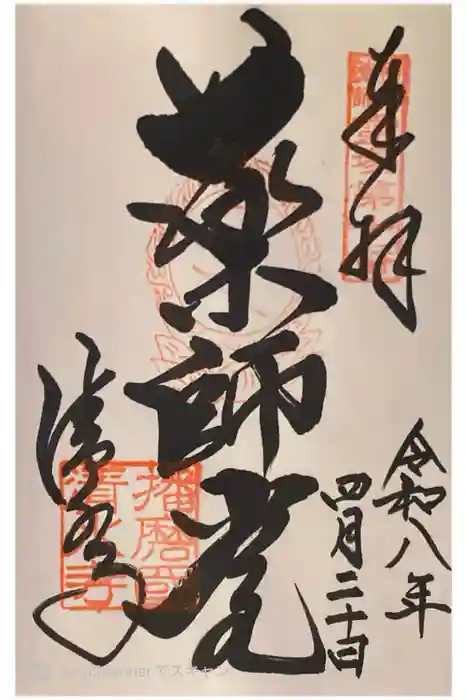 奉拝
令和八年
四月二十日
薬師堂
清水寺
播磨國
清水寺
でスキャン